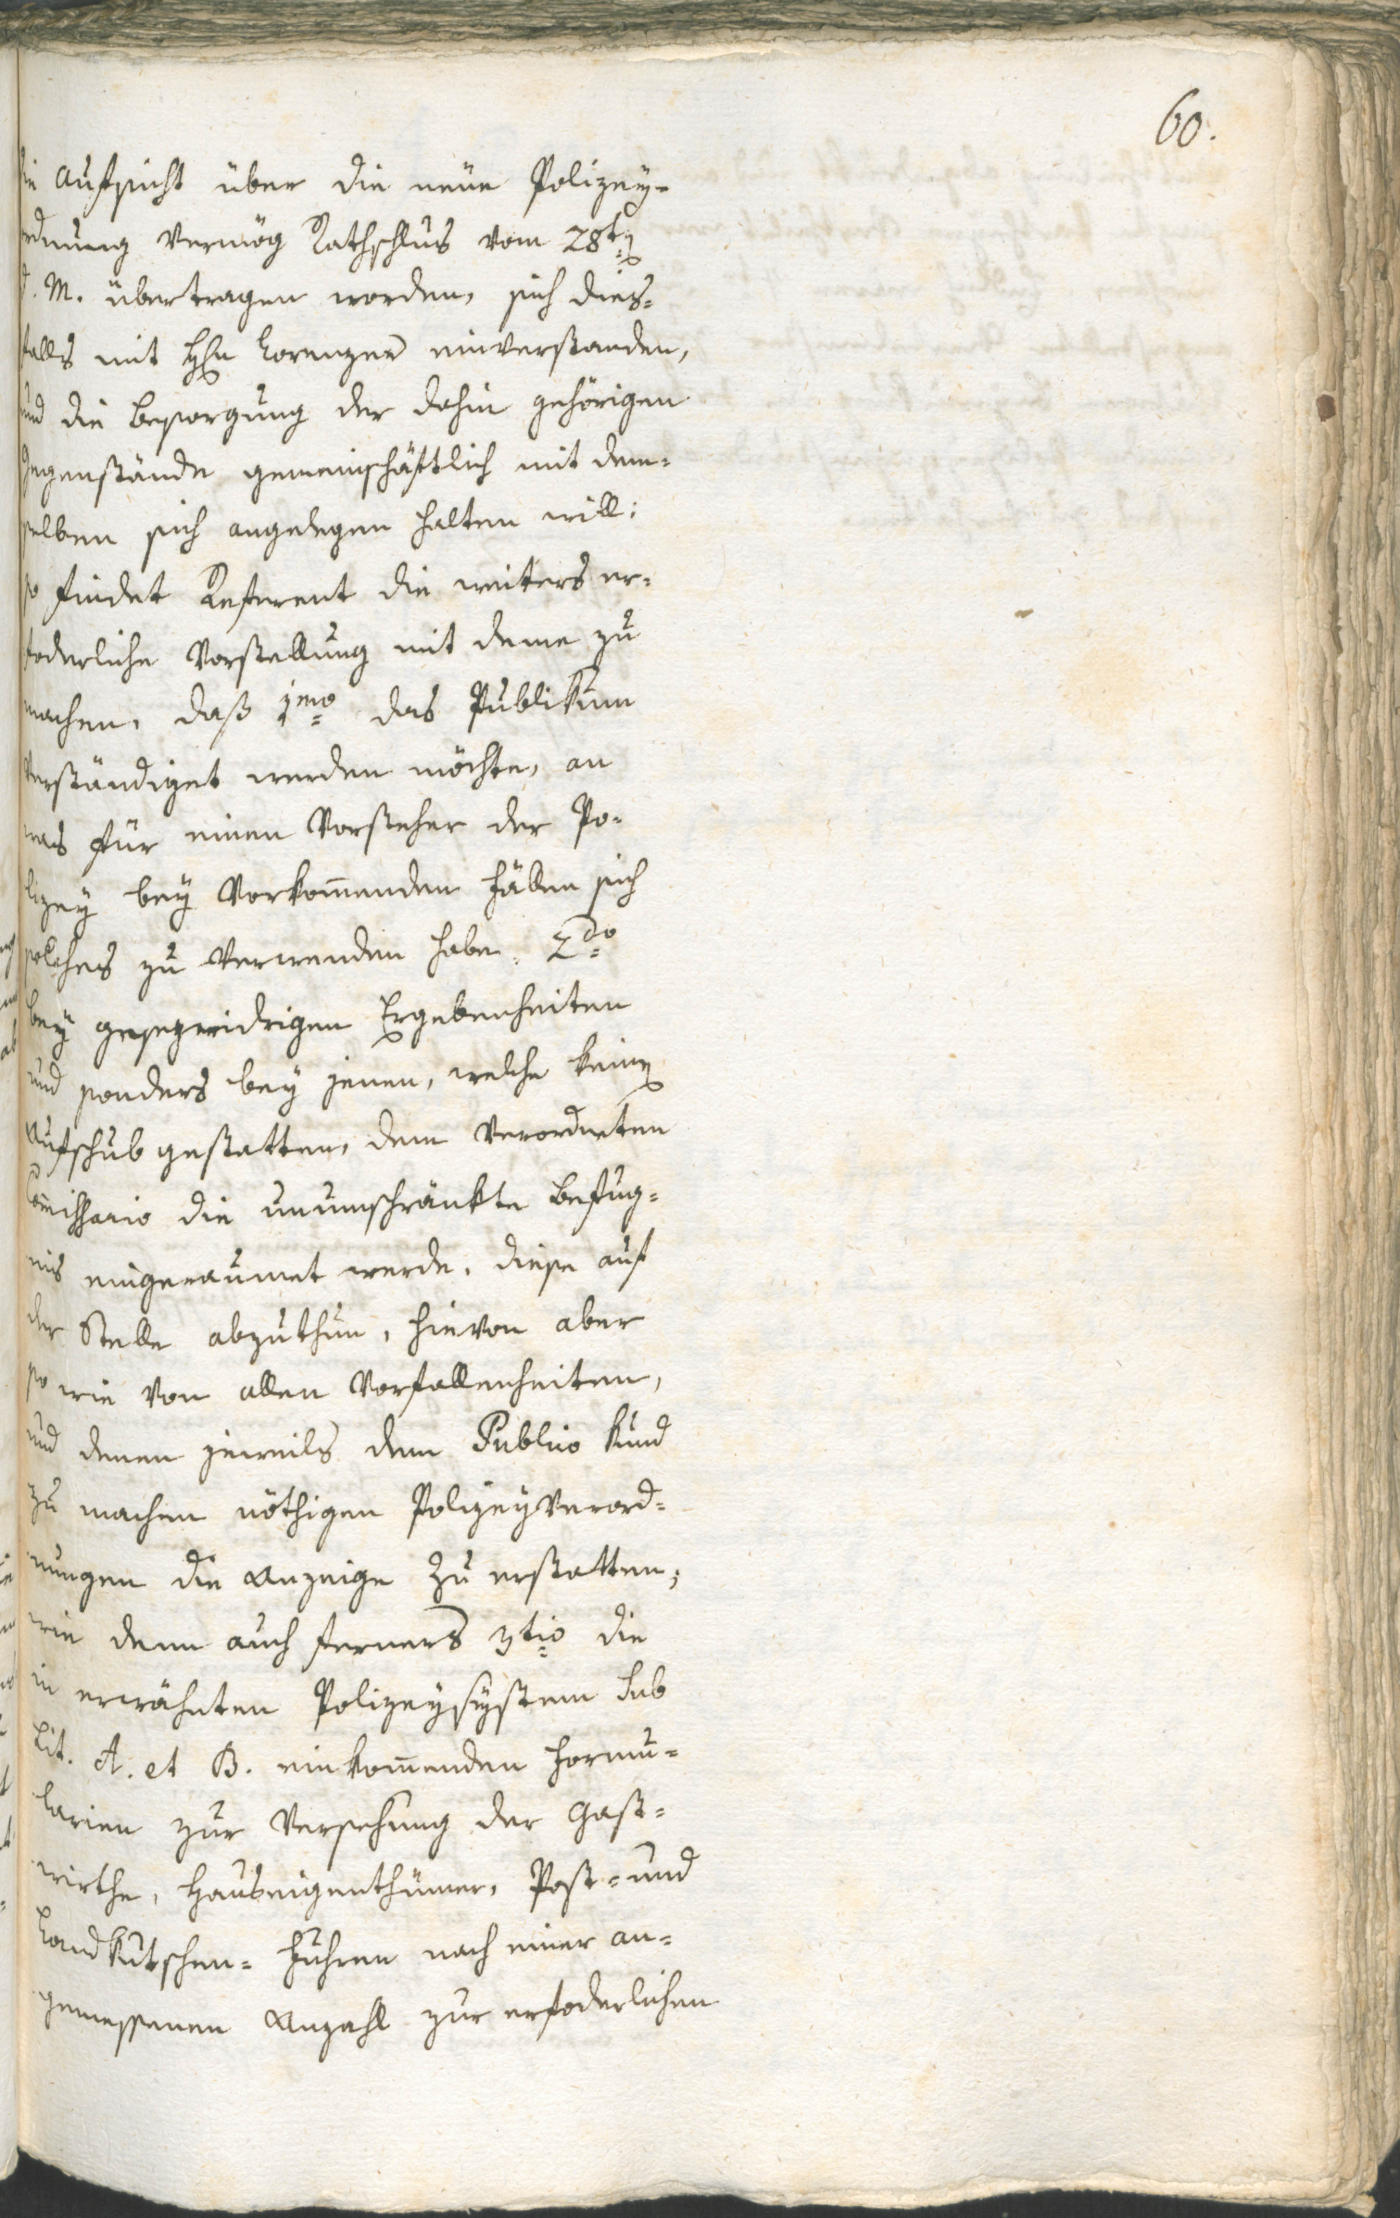 60.
die Aufsicht über die neue Polizey-
ordnung vermög Rathschlus vom 28t
d. M. übertragen worden, sich dies-
falls mit Hħ Lorenzer einverstanden,
und die Besorgung der dahin gehörigen
Gegenstände gemeinschäftlich mit dem-
selben sich angelegen halten will:
so findet Referent die weiters er-
foderliche Vorstellung mit deme zu
machen, daß 1mo das Publikum
verständiget werden möchte, an
was für einen Vorsteher der Po-
lizey bey vorkom̄enden Fällen sich
solches zu verwenden habe. 2do
bey gesezwidrigen Ergebenheiten
und sonders bey jenen, welche keinen
Aufschub gestatten, dem verordneten
Com̄issario die unumschränkte Befug-
nis eingeraumet werde, diese auf
der Stelle abzuthun, hievon aber
so wie von allen Vorfallenheiten,
und denen jeweils dem Publico kund
zu machen nöthigen Polizeyverord-
nungen die Anzeige zu erstatten;
wie dem auch ferners 3tio die
in erwähnten Polizeysystem sub
Lit. A. et B. einkom̄enden Formu-
larien zur Versehung der Gast-
wirthe, Hauseigenthümer, Post- und
Landkutschen- Fuhren nach einer an-
gemessenen Anzahl zur erfoderlichen